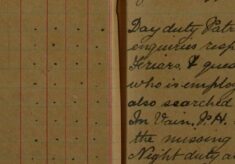 Day duty Patr
enquiries resp
Friars. & ques
who is employ
also searched
In Vain. P.H.
the missing
Night duty a